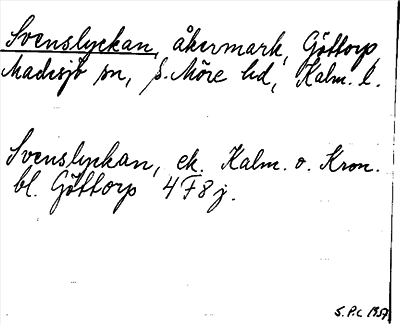 Svenslyckan, åkermark, Göttorp,
Madesjö sn, S. Möre hd, Kalm. l.
Svenslyckan, ek. Kalm. o. Kron.
bl. Göttorp 4F8j.
S.P.C 1957